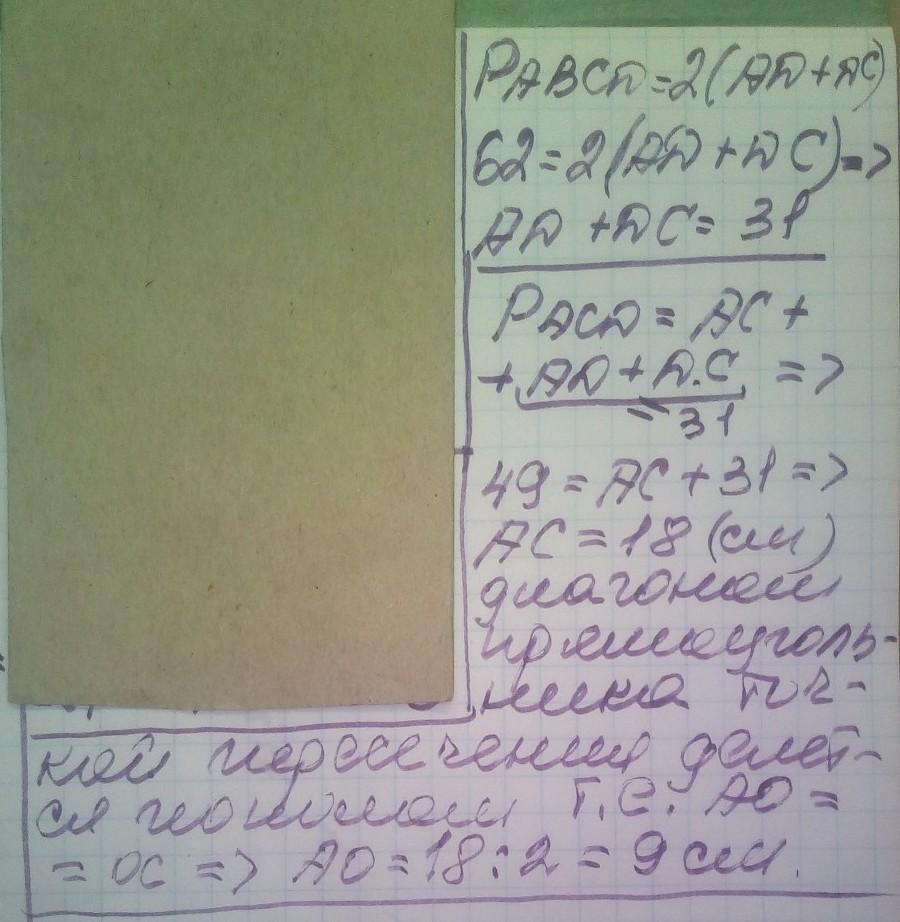 PABCD=2(AD+DC)
62=2(AD+DC)=>
AD+DC=31
PACD=AC+
+AD+DC =>
=31
49=AC+31=>
AC=18 (см)
диагонали
прямоуголь-
ника точ-
кой пересечения делят-
ся пополам т.е. AO=
=OC => AO=18:2=9см.